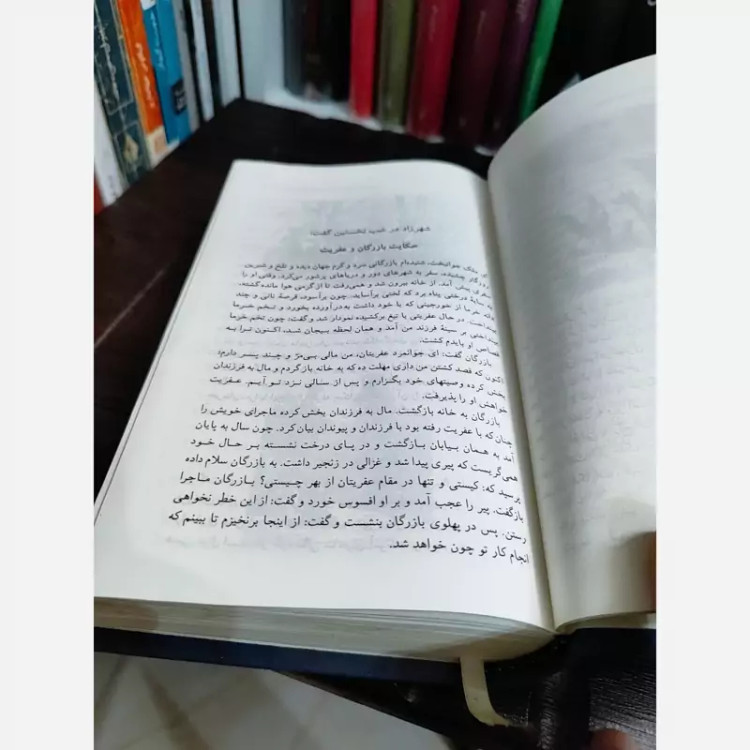 شهرزاد در شب نخستین گفت:
حکایت بازرگان و عفریت
ملک جوانبخت، شنیده‌ام بازرگانی سرد و گرم جهان دیده و تلخ و شیرین
چشیده، سفر به شهرهای دور و دریاهای پرشور می‌کرد. وقتی او را
پیش آمد. از خانه بیرون شد و همی‌رفت تا از گرمی هوا مانده گشته،
سایهٔ درختی پناه برد که لختی برآساید. چون برآسود، قرصهٔ نانی و چند
خرما از خورجینی که با خود داشت به‌در آورده بخورد و تخم خرما
بینداخت. در حال عفریتی با تیغ برکشیده نمودار شد و گفت: چون تخم خرما
بینداختی بر سینهٔ فرزند من آمد و همان لحظه بیجان شد، اکنون ترا به
قصاص او بایدم کشت.
بازرگان گفت: ای جوانمرد عفریتان، من مالی بی‌مرّ و چند پسر دارم؛
اکنون که قصد کشتن من داری مهلت ده که به خانه بازگردم و مال به فرزندان
بخش کرده وصیتهای خود بگزارم و پس از سالی نزد تو آیم. عفریت
خواهش او را پذیرفت.
بازرگان به خانه بازگشت. مال به فرزندان بخش کرده ماجرای خویش را
چنان که با عفریت رفته بود با فرزندان و پیوندان بیان کرد. چون سال به پایان
آمد به همان بیابان بازگشت و در پای درخت نشسته بر حال خود
همی‌گریست که پیری پیدا شد و غزالی در زنجیر داشت. به بازرگان سلام داده
پرسید که: کیستی و تنها در مقام عفریتان از بهر چیستی؟ بازرگان ماجرا
بازگفت. پیر را عجب آمد و بر او افسوس خورد و گفت: از این خطر نخواهی
رستن. پس در پهلوی بازرگان بنشست و گفت: از اینجا برنخیزم تا ببینم که
انجام کار تو چون خواهد شد.